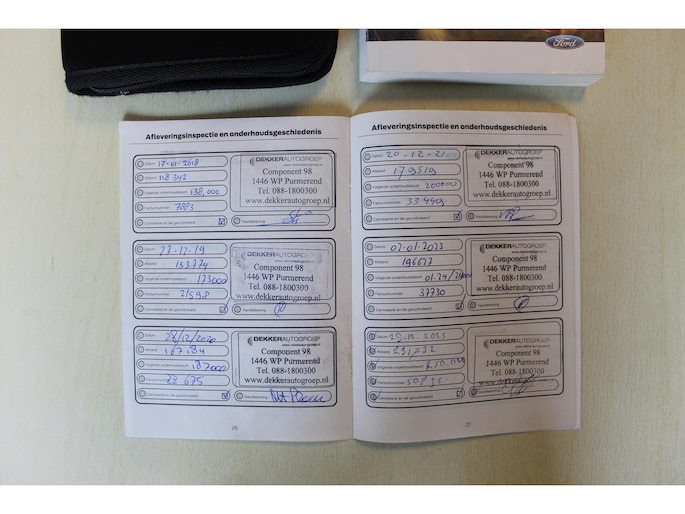 Ford
Afleveringsinspectie en onderhoudsgeschiedenis
Datum 17-01-2018
Afstand 118.342
Volgende onderhoudsbeurt 138.000
Factuurnummer 7883
Carrosserie en lak gecontroleerd
Handtekening
DEKKERAUTOGROEP
Component 98
1446 WP Purmerend
Tel. 088-1800300
www.dekkerautogroep.nl
Datum 27-12-19
Afstand 153774
Volgende onderhoudsbeurt 173000
Factuurnummer 21598
Carrosserie en lak gecontroleerd
Handtekening
DEKKERAUTOGROEP
Component 98
1446 WP Purmerend
Tel. 088-1800300
www.dekkerautogroep.nl
Datum 28/12/2020
Afstand
Volgende onderhoudsbeurt 187000
Factuurnummer 22 675
Carrosserie en lak gecontroleerd
Handtekening
DEKKERAUTOGROEP
Component 98
1446 WP Purmerend
Tel. 088-1800300
www.dekkerautogroep.nl
26
Afleveringsinspectie en onderhoudsgeschiedenis
Datum 20-12-21
Afstand 179519
Volgende onderhoudsbeurt 200000
Factuurnummer 334409
Carrosserie en lak gecontroleerd
Handtekening
DEKKERAUTOGROEP
Component 98
1446 WP Purmerend
Tel. 088-1800300
www.dekkerautogroep.nl
Datum 07-01-2023
Afstand 196677
Volgende onderhoudsbeurt
Factuurnummer 37730
Carrosserie en lak gecontroleerd
Handtekening
DEKKERAUTOGROEP
Component 98
1446 WP Purmerend
Tel. 088-1800300
www.dekkerautogroep.nl
Datum
Afstand 231732
Volgende onderhoudsbeurt
Factuurnummer 50735
Carrosserie en lak gecontroleerd
Handtekening
DEKKERAUTOGROEP
Component 98
1446 WP Purmerend
Tel. 088-1800300
www.dekkerautogroep.nl
27